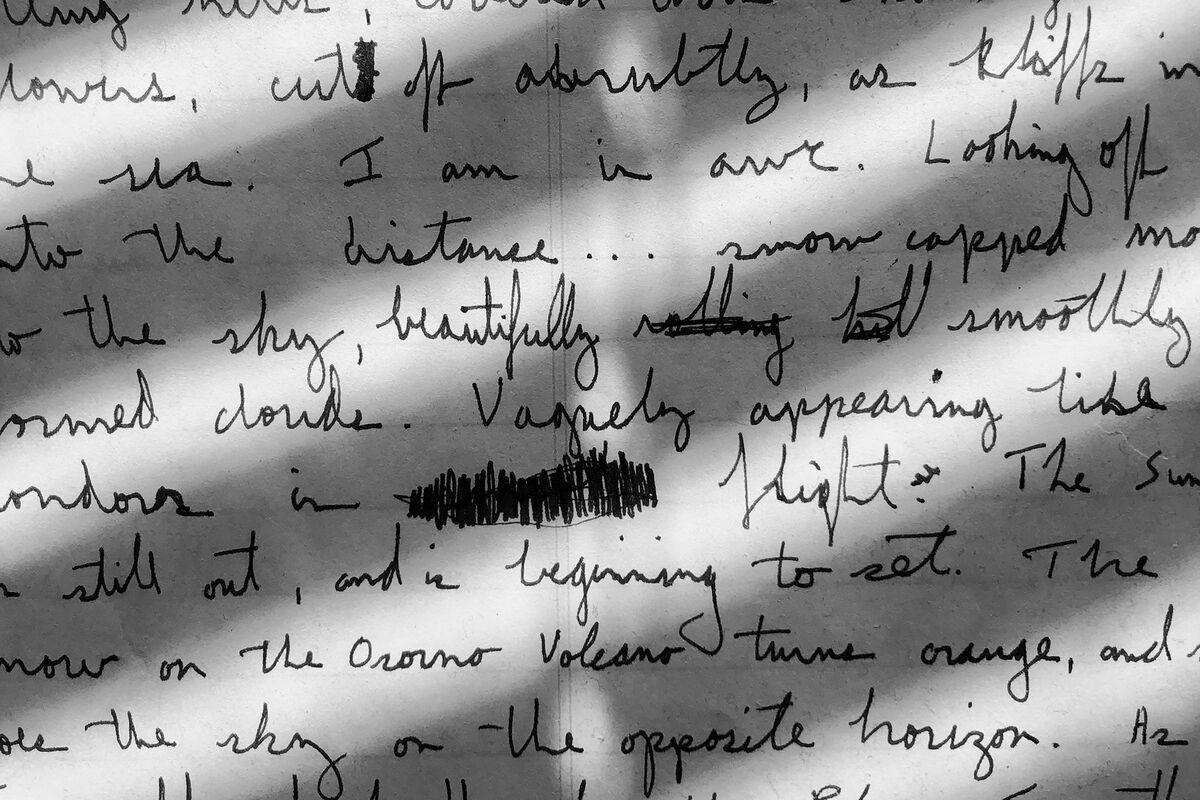 flowers, cut off abrubtly, as kliffs in
the sea. I am in awe. Looking off
into the distance... snow capped mo
to the sky, beautifully rolling but smoothly
formed clouds. Vaguely appearing like
condors in flight. The Sun
is still out, and is beginning to set. The
snow on the Osorno Volcano turns orange, and s
does the sky on the opposite horizon. As